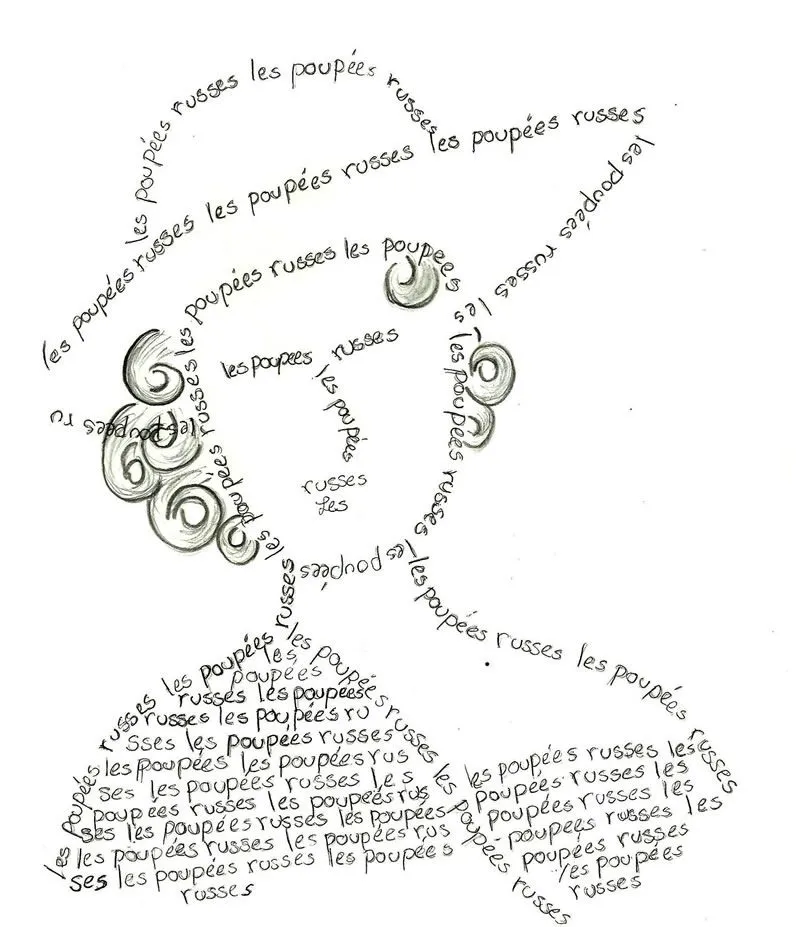 les poupées russes les poupées russes
les poupées russes les poupées russes les poupées russes
les poupées russes les
les poupées russes les poupées
les poupées russes
les poupées
russes
les
les poupées russes
les poupées ru
les poupées russes
les poupées
russes
les poupées russes les poupées russes
les poupées russes les poupées russes
les poupées russes les poupées russes
les
poupées
russes les poupées
russes les poupées ru
sses les poupées russes
les poupées les poupées rus
ses les poupées russes les
poupées russes les poupées rus
ses les poupées russes les poupées
les poupées russes les poupées rus
ses les poupées russes les poupées
russes
les poupées russes les
poupées russes les
poupées russes les
poupées russes les
poupées russes
les poupées
russes